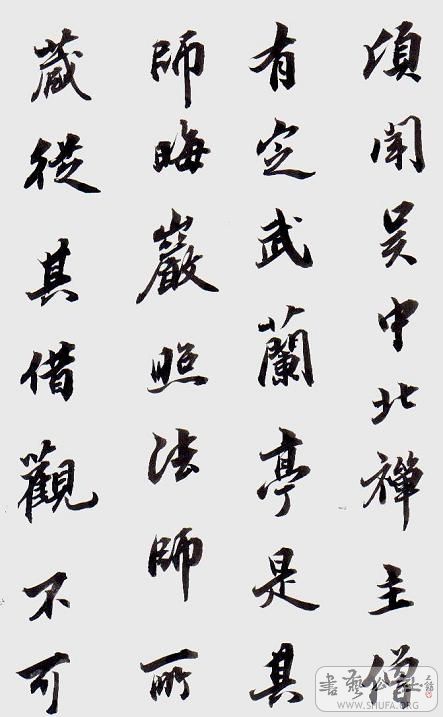 頃聞吳中北禪主僧
有定武蘭亭是其
師晦巖照法師所
藏從其借觀不可
書藝公社
WWW.SHUFA.ORG